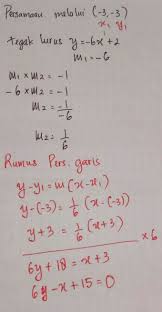 Persamaan melalui (-3,-3)
x₁ y₁
tegak lurus y=-6x+2
m₁=-6
m₁ x m₂ = -1
-6 x m₂ = -1
m₂ = -1/-6
m₂ = 1/6
Rumus Pers. garis
y-y₁=m(x-x₁)
y-(-3)=1/6(x-(-3))
y+3=1/6(x+3)
x 6
6y+18=x+3
6y-x+15=0